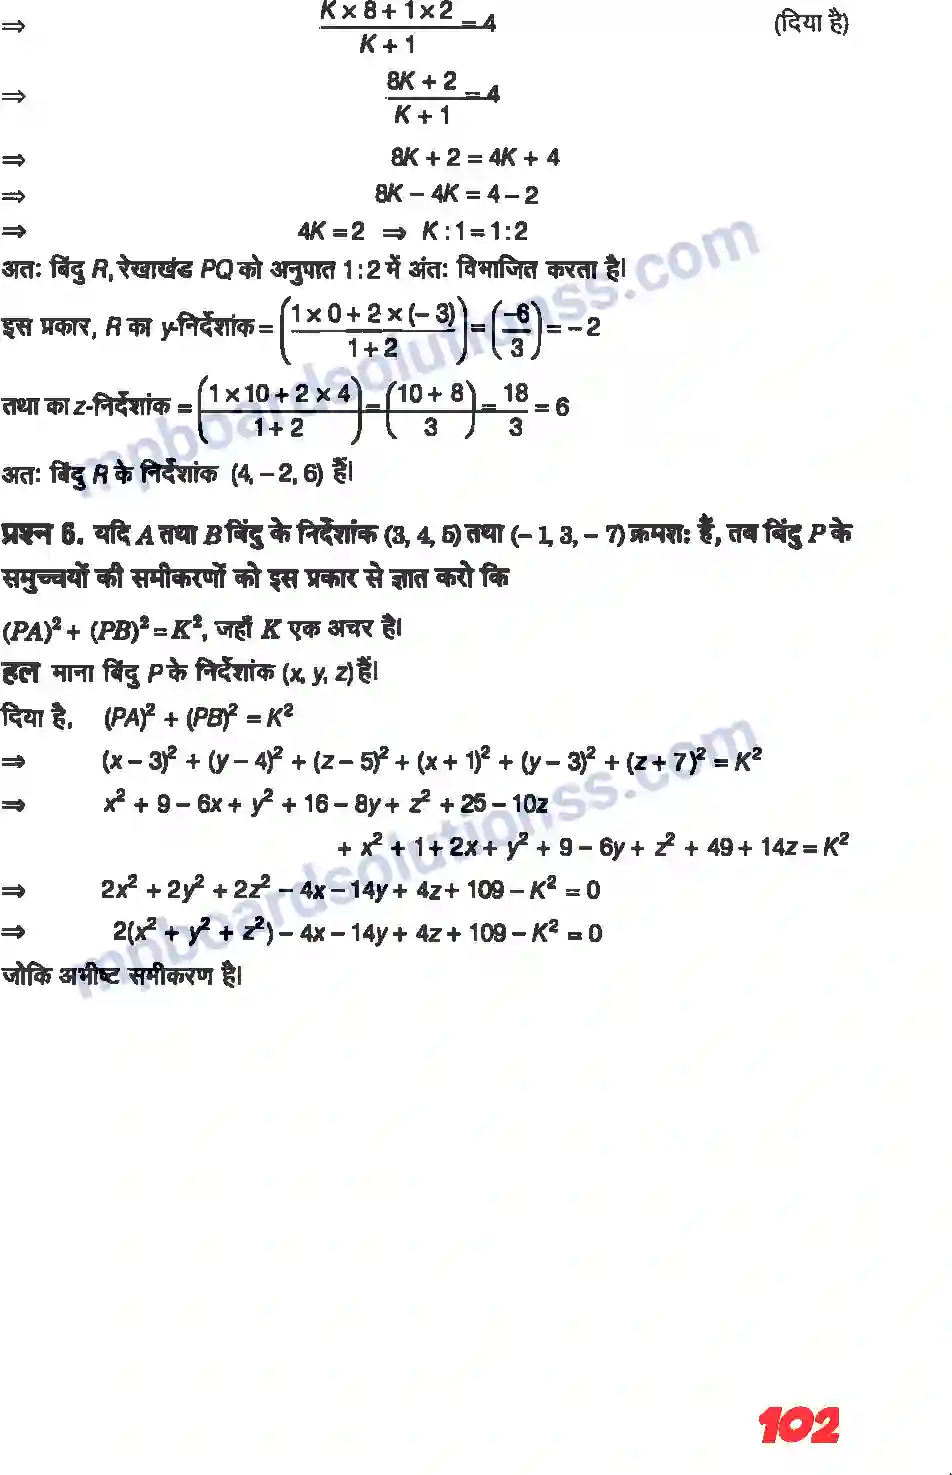 ⇒ (K × 8 + 1 × 2)/(K + 1) = 4 (दिया है)
⇒ (8K + 2)/(K + 1) = 4
⇒ 8K + 2 = 4K + 4
⇒ 8K – 4K = 4 – 2
⇒ 4K = 2 ⇒ K : 1 = 1 : 2
अतः बिंदु R, रेखाखंड PQ को अनुपात 1 : 2 में अंतः विभाजित करता है।
इस प्रकार, R का y-निर्देशांक = ((1 × 0 + 2 × (– 3))/(1 + 2)) = (–6/3) = – 2
तथा का z-निर्देशांक = ((1 × 10 + 2 × 4)/(1 + 2)) = ((10 + 8)/3) = 18/3 = 6
अतः बिंदु R के निर्देशांक (4, – 2, 6) हैं।
प्रश्न 6. यदि A तथा B बिंदु के निर्देशांक (3, 4, 5) तथा (– 1, 3, – 7) क्रमशः हैं, तब बिंदु P के
समुच्चयों की समीकरणों को इस प्रकार से ज्ञात करो कि
(PA)² + (PB)² = K², जहाँ K एक अचर है।
हल माना बिंदु P के निर्देशांक (x, y, z) हैं।
दिया है, (PA)² + (PB)² = K²
⇒ (x – 3)² + (y – 4)² + (z – 5)² + (x + 1)² + (y – 3)² + (z + 7)² = K²
⇒ x² + 9 – 6x + y² + 16 – 8y + z² + 25 – 10z
+ x² + 1 + 2x + y² + 9 – 6y + z² + 49 + 14z = K²
⇒ 2x² + 2y² + 2z² – 4x – 14y + 4z + 109 – K² = 0
⇒ 2(x² + y² + z²) – 4x – 14y + 4z + 109 – K² = 0
जोकि अभीष्ट समीकरण है।
mpboardsolutionss.com
mpboardsolutionss.com
102